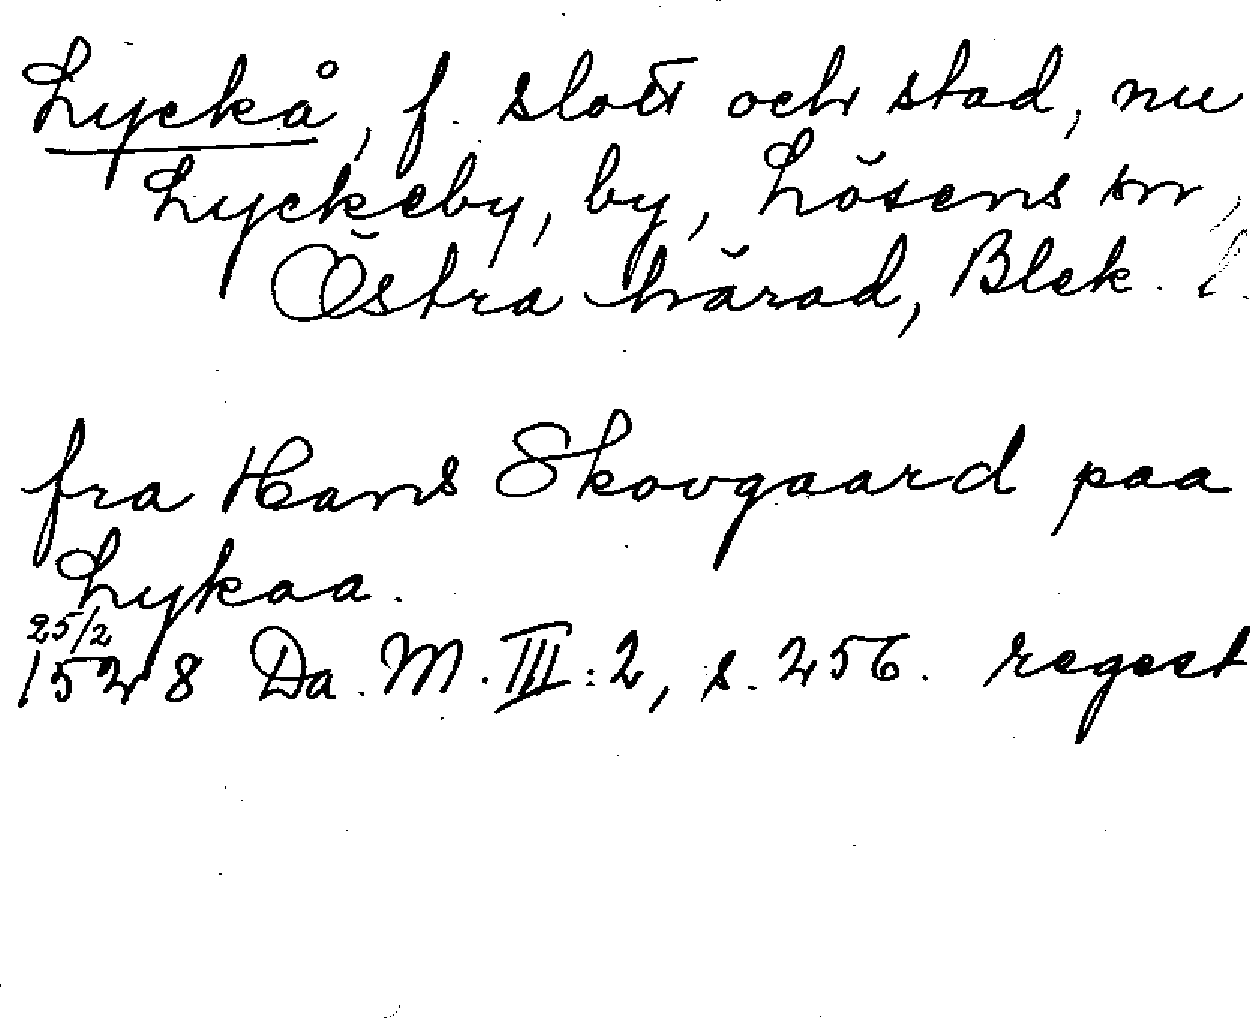 Lyckå, f. slott och stad, nu
Lyckeby, by, Lösens sn,
Östra härad, Blek. l.
fra Hans Skovgaard paa
Lykaa.
25/2
1528 Da. M. III:2, s. 256. regest